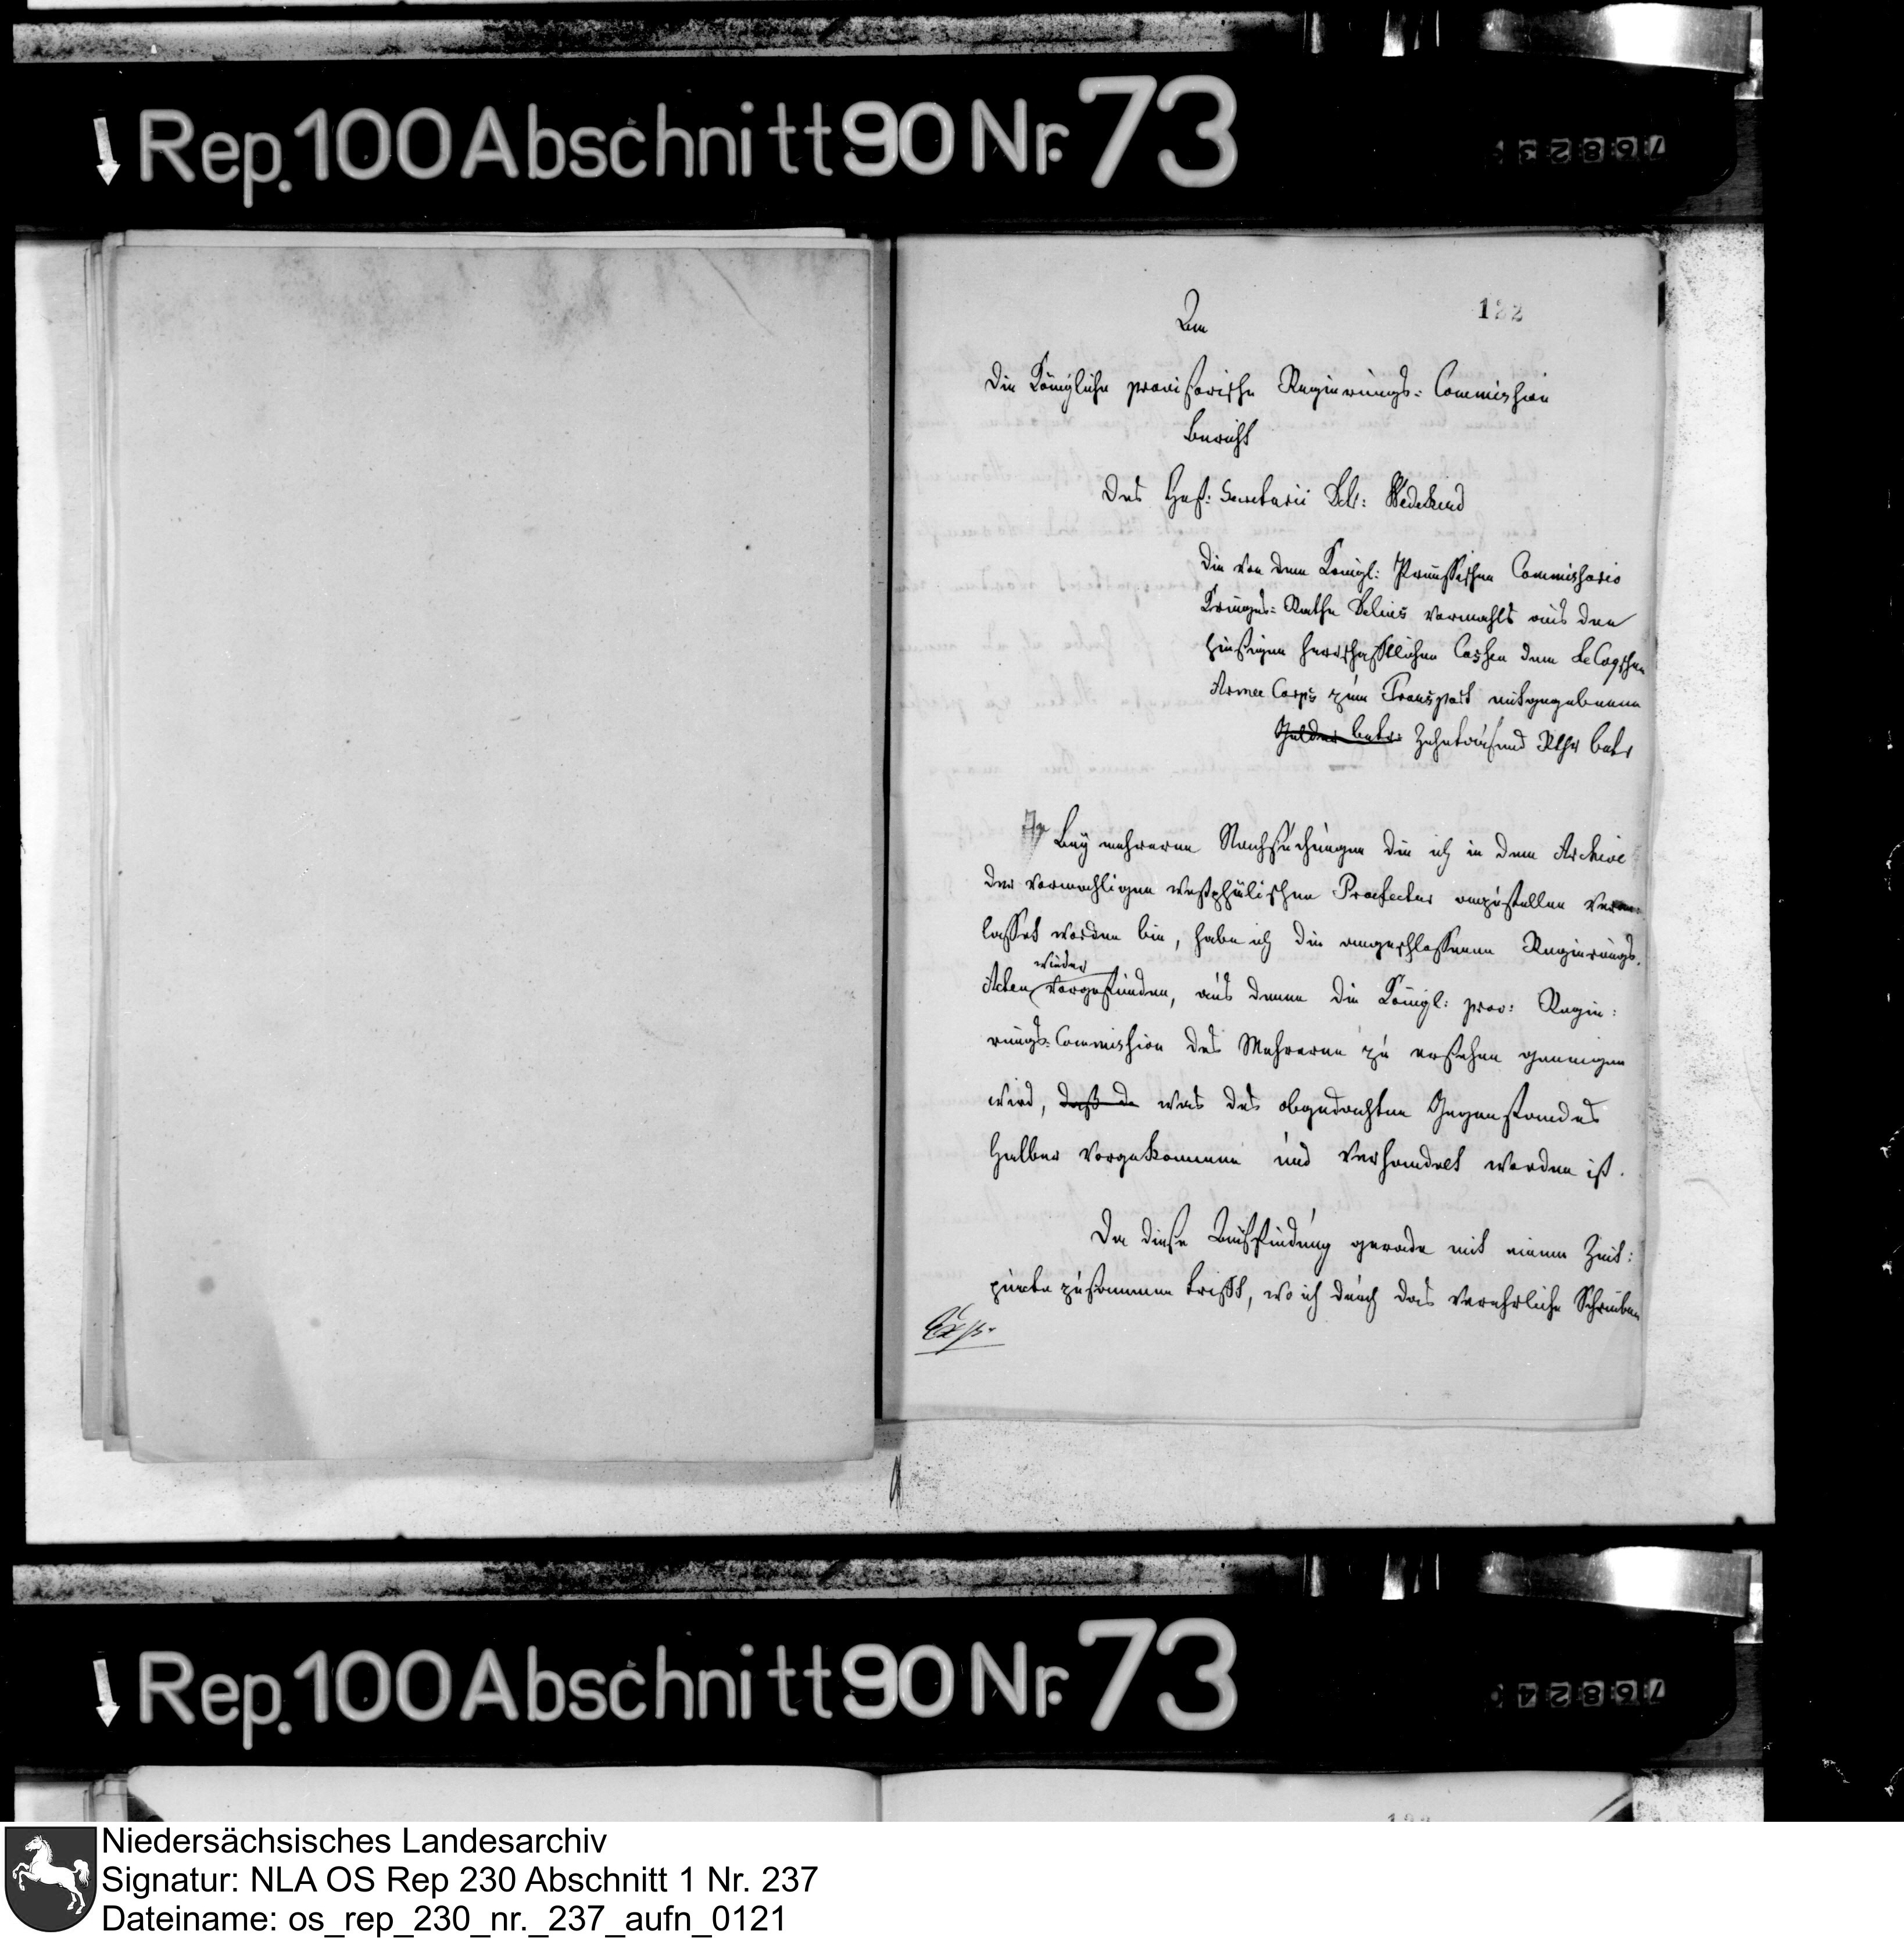 Rep. 100 Abschnitt 90 Nr. 73
122
An
die Königliche provisorische Regierungs-Commission
Bericht
des Geh: Secretarii Wedekind
die von dem Königl: Preussischen Commissario
Krieges-Rathe Delius vormahls aus den
hiesigen herrschaftlichen Cassen dem LeCoqschen
Armee Corps zum Transport mitgegebenen
Gelder betr: Zehntausend Rthr betr
Bey mehreren Nachsuchungen die ich in dem Archive
der vormahligen westphälischen Praefectur anzustellen veran-
lasset worden bin, habe ich die angeschlossenen Regierungs-
wieder
Acten vorgefunden, aus denen die Königl: prov: Regie:
rungs-Commission des Mehreren zu ersehen geneigen
wird, daß da was des obgedachten Gegenstandes
halber vorgekommen und verhandelt worden ist.
Da diese Auffindung gerade mit einem Zeit:
puncte zusammen trifft, wo ich durch das verehrliche Schreiben
Rep. 100 Abschnitt 90 Nr. 73
Niedersächsisches Landesarchiv
Signatur: NLA OS Rep 230 Abschnitt 1 Nr. 237
Dateiname: os_rep_230_nr._237_aufn_0121